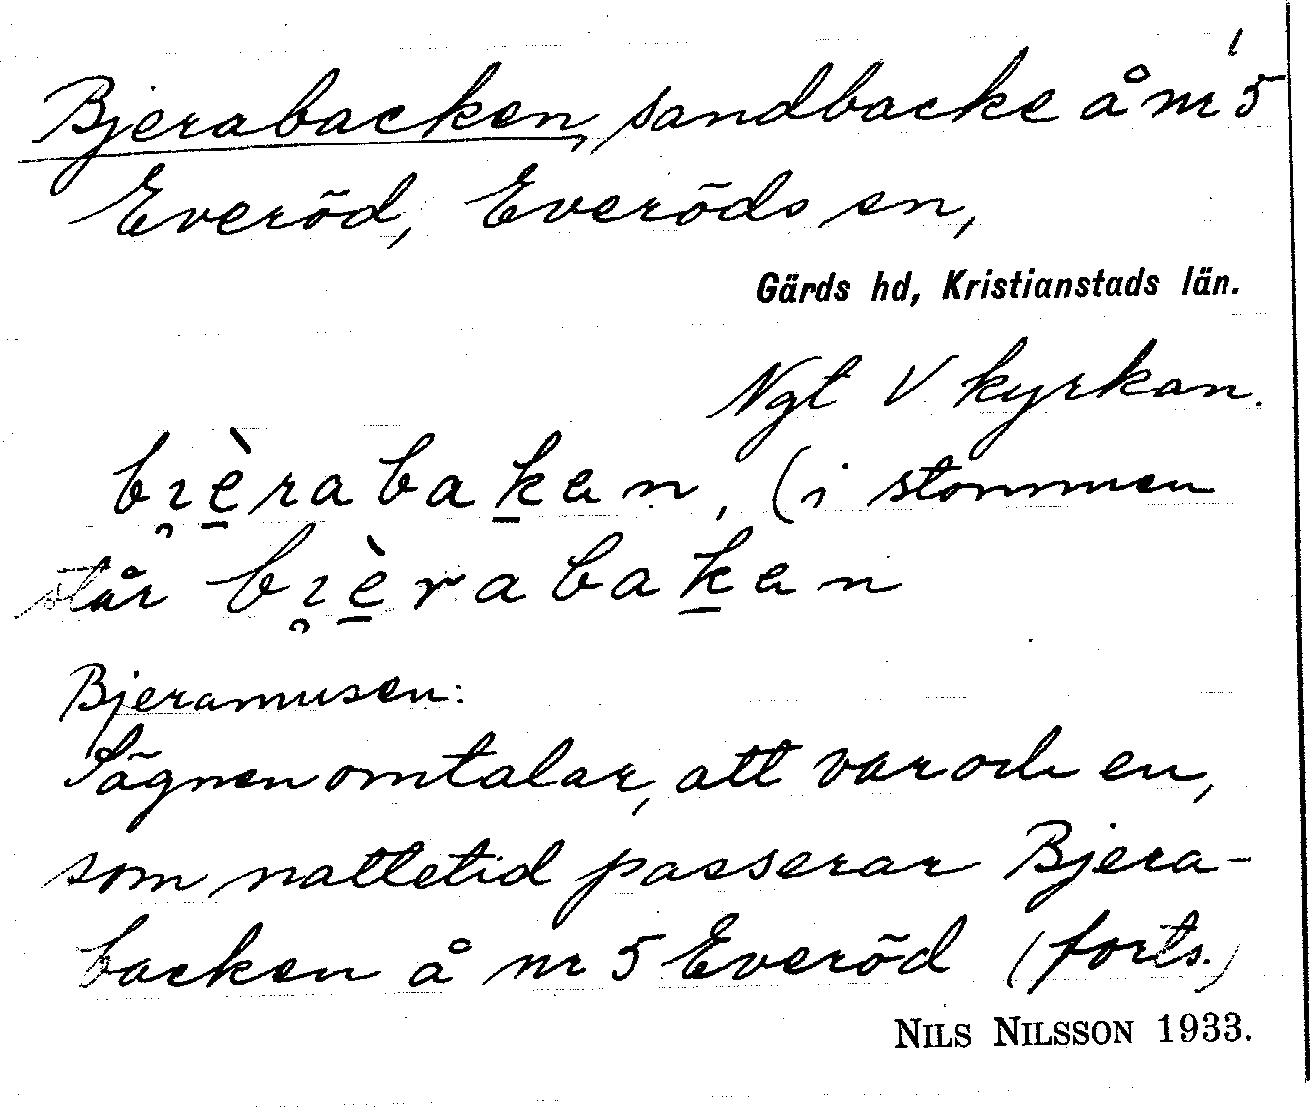 1
Bjerabacken, sandbacke å nr 5
Everöd, Everöds sn,
Gärds hd, Kristianstads län.
Ngt V kyrkan.
bɿ̯è̱rabaḵen, (i stommen
står bɿ̯è̱rabaḵen
Bjeramusen:
Sägnen omtalar, att var och en,
som nattetid passerar Bjera-
backen å nr 5 Everöd (forts.)
NILS NILSSON 1933.